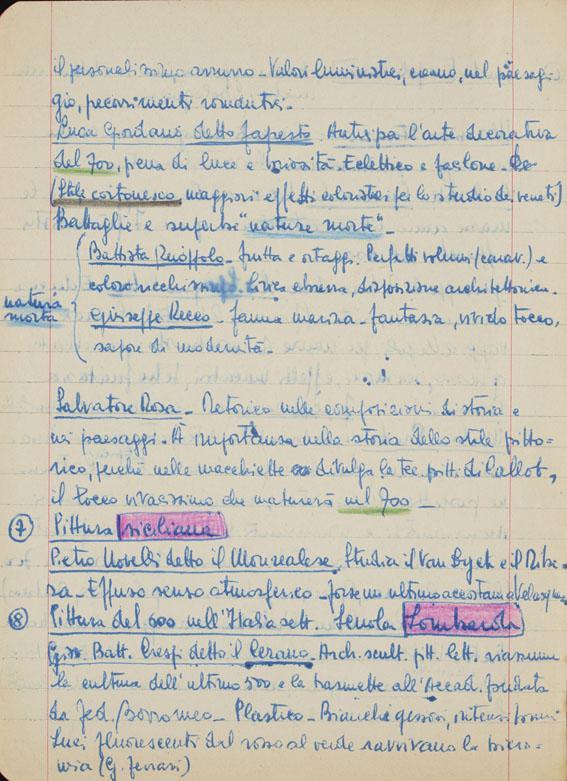 il personalissimo azzurro - Valori luministici, erano, nel paesag-
gio, precorrimenti romantici.
Luca Giordano detto fapesto Anticipa l'arte decorativa
del 700, piena di luce e ariosità. Eclettico e facilone.
(Stile cortonesco, maggiori effetti coloristici per lo studio dei veneti)
Battaglie e superbe "nature morte"
Battista Ruoppolo - frutta e ortaggi. Perfetti volumi (carav.) e
colore ricchissimo. Lirica ebrezza, disposizione architettonica.
natura
morta
Giuseppe Recco - fauna marina - fantasia, vivido tocco,
sapore di modernità.
Salvatore Rosa - Retorico nelle composizioni di storia e
nei paesaggi. À importanza nella storia dello stile pitto-
rico, perché nelle macchiette divulga la tec. pitt. di Callot,
il tocco vivacissimo che maturerà nel 700 -
7 Pittura siciliana
Pietro Novelli detto il Monrealese. Studia il Van Dyck e il Ribe-
ra - Effuso senso atmosferico - forse un ultimo accostam. a Velasquez
8 Pittura del 600 nell'Italia sett. Scuola Lombarda
Giov. Batt. Crespi detto il Cerano - Arch. scult. pitt. lett. riassume
la cultura dell'ultimo 500 e la trasmette all'Accad. fondata
da Fed. Borromeo - Plastico - Bianchi gessosi, intensi
Luci fluorescenti dal rosso al verde ravvivano la
(G. Ferrari)